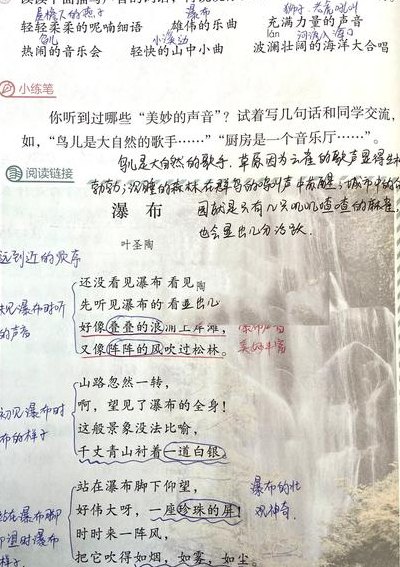 屋檐下的燕子 瀑布 狮子、老虎吼叫
轻轻柔柔的呢喃细语 雄伟的乐曲 充满力量的声音
鸟儿 小溪流动 lán 河流入海口
热闹的音乐会 轻快的山中小曲 波澜壮阔的海洋大合唱
小练笔
你听到过哪些“美妙的声音”？试着写几句话和同学交流，
如，“鸟儿是大自然的歌手……”“厨房是一个音乐厅……”。
鸟儿是大自然的歌手，草原因为云雀的歌声显得生机
勃勃；沉睡的森林在群鸟的鸣叫声中苏醒；城市中的
阅读链接
瀑布
园就是只有几只叽叽喳喳的麻雀，
也会显出几分活跃.
叶圣陶
远到近的顺序
还没看见瀑布 看见 陶
先听见瀑布的 看 显出几
好像叠叠的浪涌上岸滩，
又像阵阵的风吹过松林。
瀑布声音
美妙丰富
未见瀑布时听
的声音
山路忽然一转，
啊，望见了瀑布的全身！
这般景象没法比喻，
千丈青山衬着一道白银。
初见瀑布时
布的样子
站在瀑布脚下仰望，
好伟大呀，一座珍珠的屏！
时时来一阵风，
把它吹得如烟，如雾，如尘。
瀑布的壮
观神奇.
站在瀑布脚
仰望时瀑布
样子